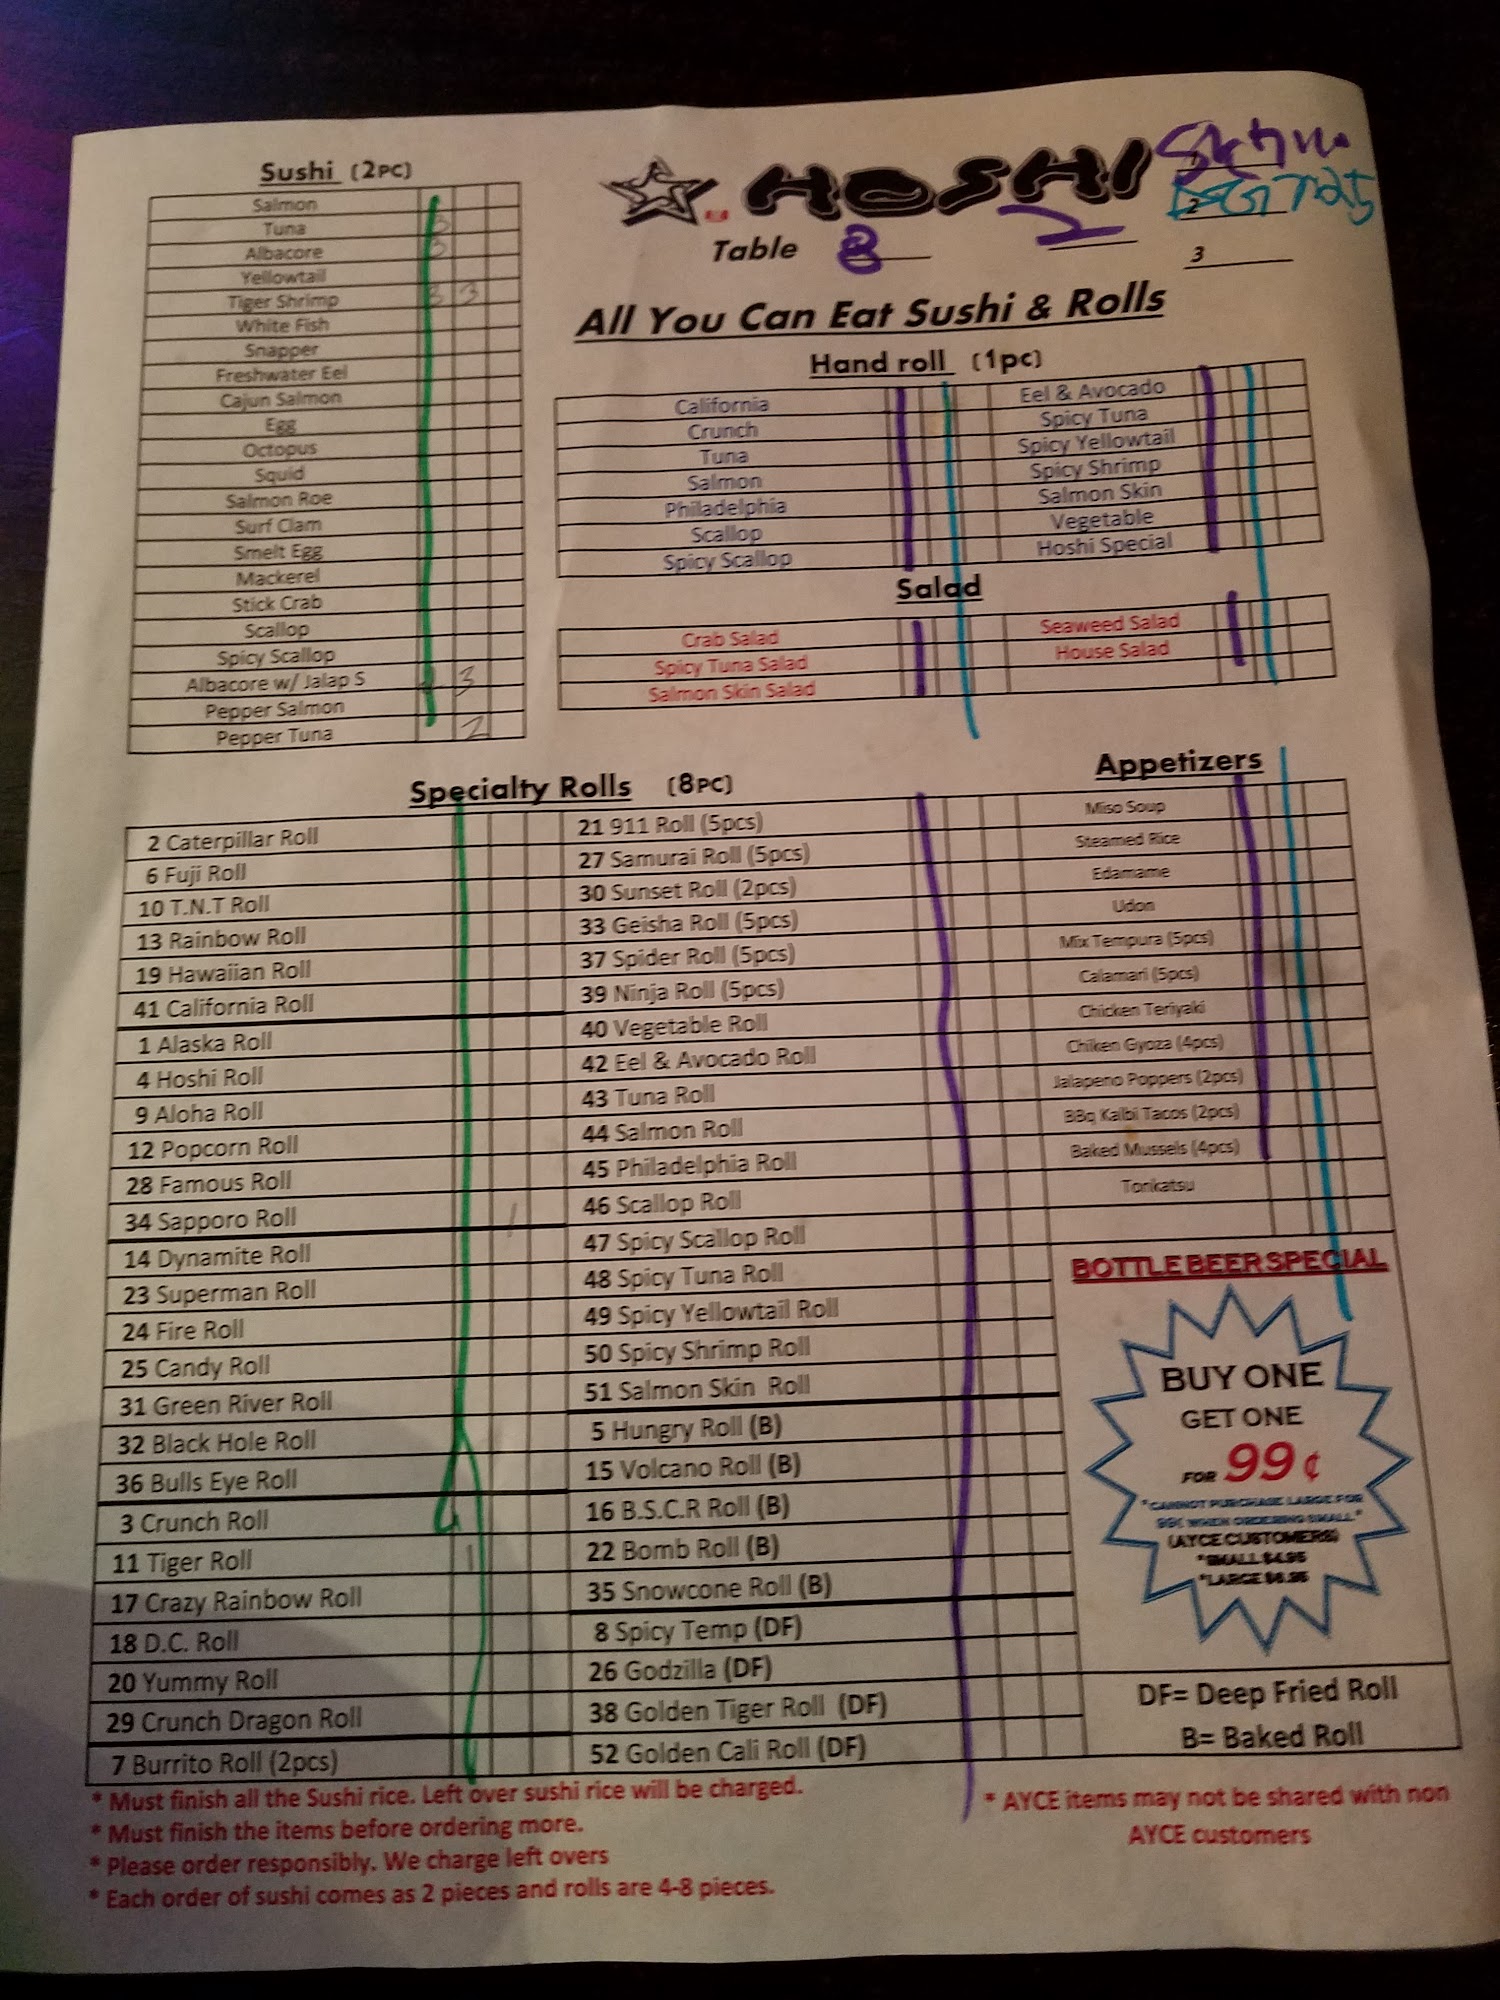 Sushi (2PC)
Salmon
Tuna 3
Albacore 3
Yellowtail
Tiger Shrimp 3 3
White Fish
Snapper
Freshwater Eel
Cajun Salmon
Egg
Octopus
Squid
Salmon Roe
Surf Clam
Smelt Egg
Mackerel
Stick Crab
Scallop
Spicy Scallop
Albacore w/ Jalap S 3
Pepper Salmon
Pepper Tuna 2
HOSHI
Table 8 2
2
3
All You Can Eat Sushi & Rolls
Hand roll (1pc)
California
Crunch
Tuna
Salmon
Philadelphia
Scallop
Spicy Scallop
Eel & Avocado
Spicy Tuna
Spicy Yellowtail
Spicy Shrimp
Salmon Skin
Vegetable
Hoshi Special
Salad
Crab Salad
Spicy Tuna Salad
Salmon Skin Salad
Seaweed Salad
House Salad
Specialty Rolls (8PC)
2 Caterpillar Roll
6 Fuji Roll
10 T.N.T Roll
13 Rainbow Roll
19 Hawaiian Roll
41 California Roll
1 Alaska Roll
4 Hoshi Roll
9 Aloha Roll
12 Popcorn Roll
28 Famous Roll
34 Sapporo Roll 1
14 Dynamite Roll
23 Superman Roll
24 Fire Roll
25 Candy Roll
31 Green River Roll
32 Black Hole Roll
36 Bulls Eye Roll
3 Crunch Roll
11 Tiger Roll 1
17 Crazy Rainbow Roll
18 D.C. Roll
20 Yummy Roll
29 Crunch Dragon Roll
7 Burrito Roll (2pcs)
21 911 Roll (5pcs)
27 Samurai Roll (5pcs)
30 Sunset Roll (2pcs)
33 Geisha Roll (5pcs)
37 Spider Roll (5pcs)
39 Ninja Roll (5pcs)
40 Vegetable Roll
42 Eel & Avocado Roll
43 Tuna Roll
44 Salmon Roll
45 Philadelphia Roll
46 Scallop Roll
47 Spicy Scallop Roll
48 Spicy Tuna Roll
49 Spicy Yellowtail Roll
50 Spicy Shrimp Roll
51 Salmon Skin Roll
5 Hungry Roll (B)
15 Volcano Roll (B)
16 B.S.C.R Roll (B)
22 Bomb Roll (B)
35 Snowcone Roll (B)
8 Spicy Temp (DF)
26 Godzilla (DF)
38 Golden Tiger Roll (DF)
52 Golden Cali Roll (DF)
Appetizers
Miso Soup
Steamed Rice
Edamame
Udon
Mix Tempura (5pcs)
Calamari (5pcs)
Chicken Teriyaki
Chiken Gyoza (4pcs)
Jalapeno Poppers (2pcs)
BBq Kalbi Tacos (2pcs)
Baked Mussels (4pcs)
Tonkatsu
BOTTLE BEER SPECIAL
BUY ONE
GET ONE
FOR 99¢
*CANNOT PURCHASE LARGE FOR
99¢ WHEN ORDERING SMALL*
(AYCE CUSTOMERS)
*SMALL $4.95
*LARGE $6.95
DF= Deep Fried Roll
B= Baked Roll
* Must finish all the Sushi rice. Left over sushi rice will be charged.
* Must finish the items before ordering more.
* Please order responsibly. We charge left overs
* Each order of sushi comes as 2 pieces and rolls are 4-8 pieces.
* AYCE items may not be shared with non
AYCE customers